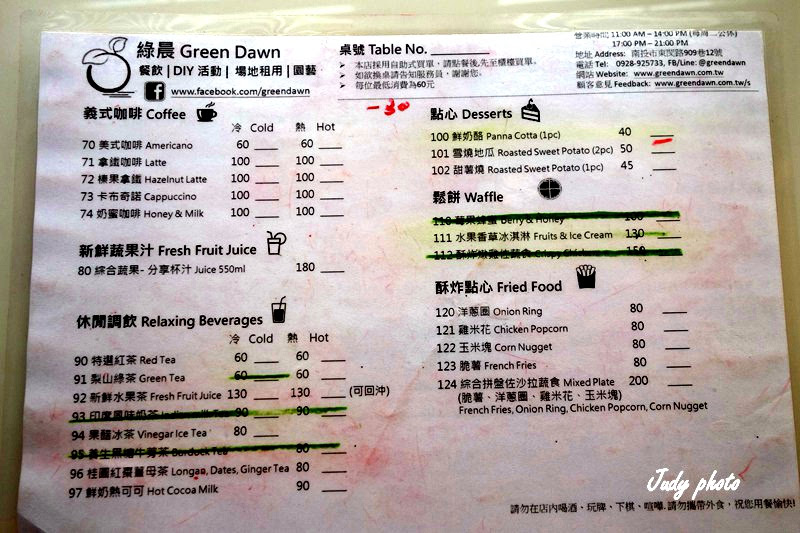 綠晨 Green Dawn
餐飲 | DIY 活動 | 場地租用 | 園藝
f www.facebook.com/greendawn
桌號 Table No.
➢ 本店採用自助式買單，請點餐後,先至櫃檯買單。
➢ 如欲換桌請告知服務員，謝謝您。
➢ 每位最低消費為60元
營業時間: 11:00 AM – 14:00 PM (每周二公休)
17:00 PM – 21:00 PM
地址 Address: 南投市東閔路909巷12號
電話 Tel: 0928-925733, FB/Line: @greendawn
網站 Website: www.greendawn.com.tw
顧客意見 Feedback: www.greendawn.com.tw/s
義式咖啡 Coffee
冷 Cold 熱 Hot
70 美式咖啡 Americano 60 60
71 拿鐵咖啡 Latte 100 100
72 榛果拿鐵 Hazelnut Latte 100 100
73 卡布奇諾 Cappuccino 100 100
74 奶蜜咖啡 Honey & Milk 100 100
新鮮蔬果汁 Fresh Fruit Juice
80 綜合蔬果- 分享杯汁 Juice 550ml 180
休閒調飲 Relaxing Beverages
冷 Cold 熱 Hot
90 特選紅茶 Red Tea 60 60
91 梨山綠茶 Green Tea 60 60
92 新鮮水果茶 Fresh Fruit Juice 130 130 (可回沖)
93 印度風味奶茶 90 90
94 果醋冰茶 Vinegar Ice Tea 80
95 養生黑糖牛蒡茶 Burdock Tea 80
96 桂圓紅棗薑母茶 Longan, Dates, Ginger Tea 80
97 鮮奶熱可可 Hot Cocoa Milk 90
-30
點心 Desserts
100 鮮奶酪 Panna Cotta (1pc) 40
101 雪燒地瓜 Roasted Sweet Potato (2pc) 50
102 甜薯燒 Roasted Sweet Potato (1pc) 45
鬆餅 Waffle
110 莓果蜂蜜 Berry & Honey 100
111 水果香草冰淇淋 Fruits & Ice Cream 130
112 酥炸嫩雞佐蔬食 Crispy 150
酥炸點心 Fried Food
120 洋蔥圈 Onion Ring 80
121 雞米花 Chicken Popcorn 80
122 玉米塊 Corn Nugget 80
123 脆薯 French Fries 80
124 綜合拼盤佐沙拉蔬食 Mixed Plate 200
(脆薯、洋蔥圈、雞米花、玉米塊)
French Fries, Onion Ring, Chicken Popcorn, Corn Nugget
Judy photo
請勿在店內喝酒、玩牌、下棋、喧嘩.請勿攜帶外食，祝您用餐愉快!